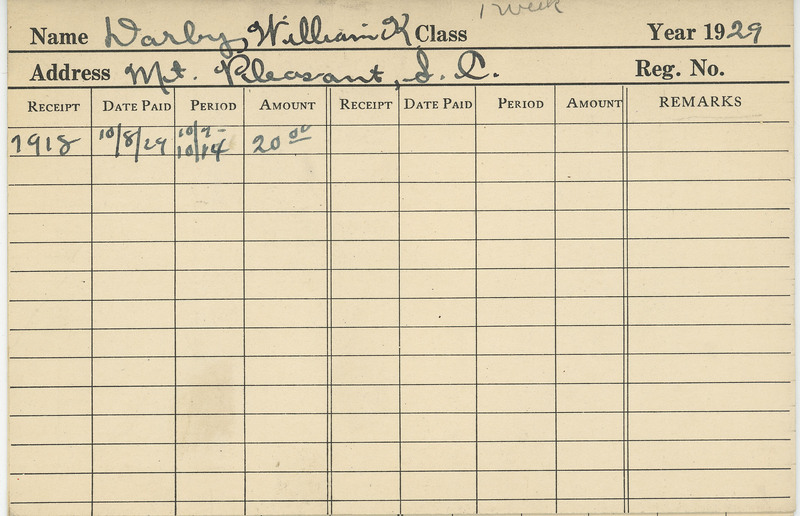 1 week
Name Darby, William K Class Year 1929
Address Mt. Pleasant, S. C. Reg. No.
RECEIPT DATE PAID PERIOD AMOUNT RECEIPT DATE PAID PERIOD AMOUNT REMARKS
1918 10/8/29 10/7- 20 00
10/14